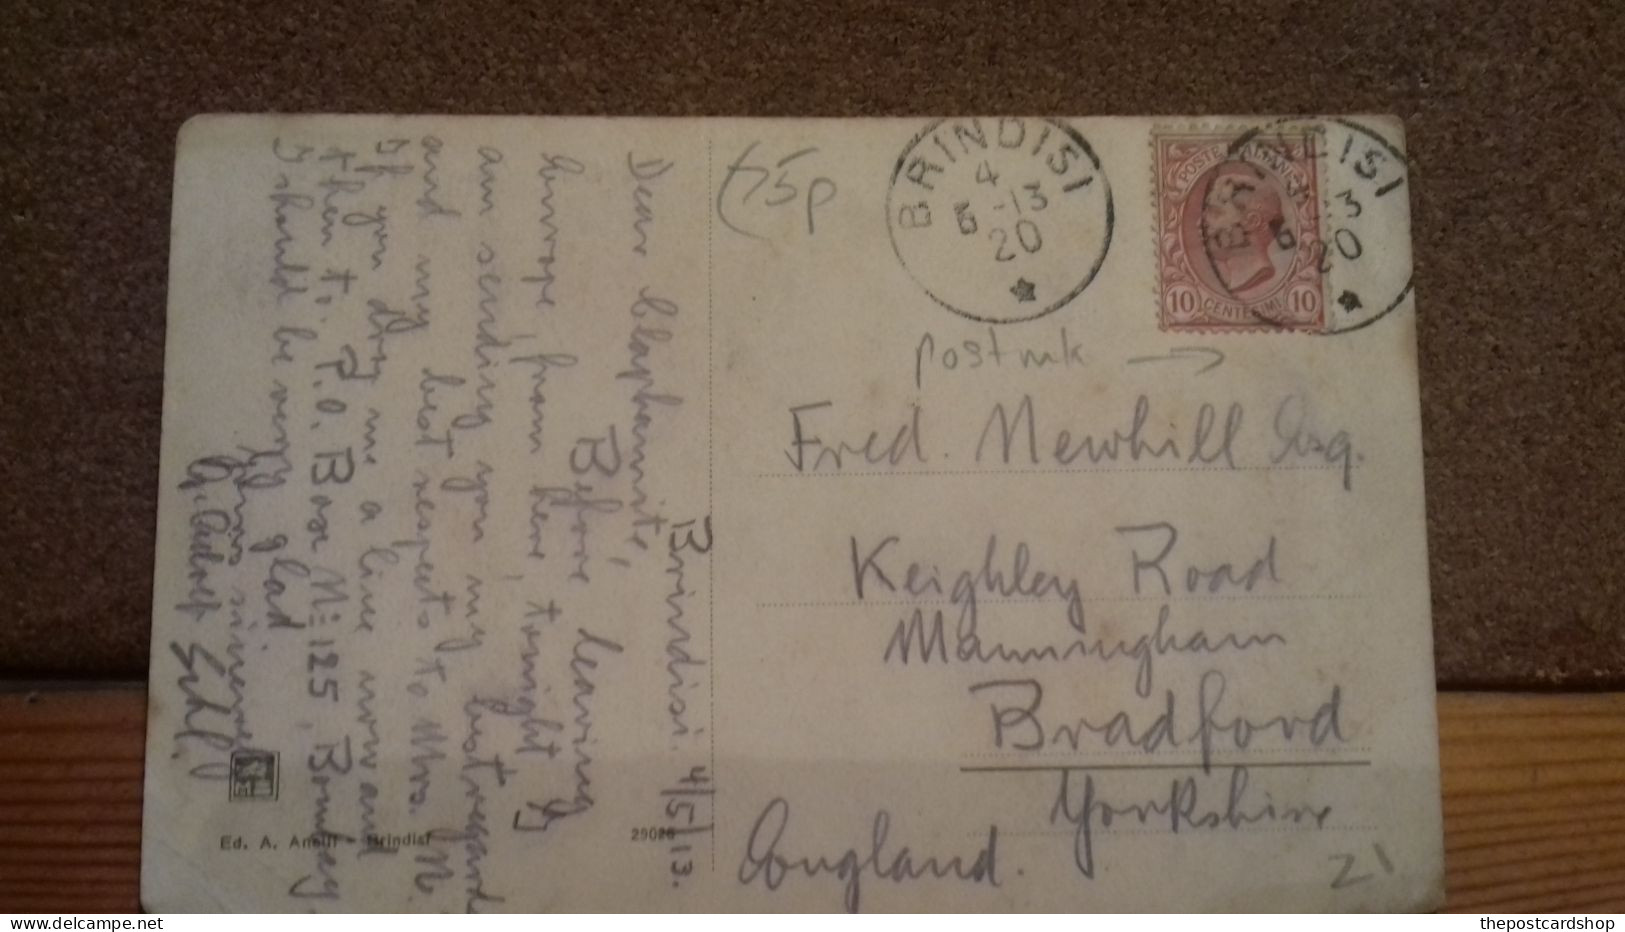 Brindisi. 4/5/13.
Dear Claphamite,
Before leaving
Europe, from here, tonight I
am sending you my best regards
and my best respects to Mrs. N.
If you drop me a line now and
then to P.O. Box No 125, Bombay,
I should be very glad
Yours sincerely
Ed. A. Brindisi
29026
75p
BRINDISI
4
5 -13
20
POSTE ITALIANE
10 CENTESIMI 10
BRINDISI
5 13
20
postmk
Fred. Newhill Esq.
Keighley Road
Manningham
Bradford
Yorkshire
England.
21
thepostcardshop